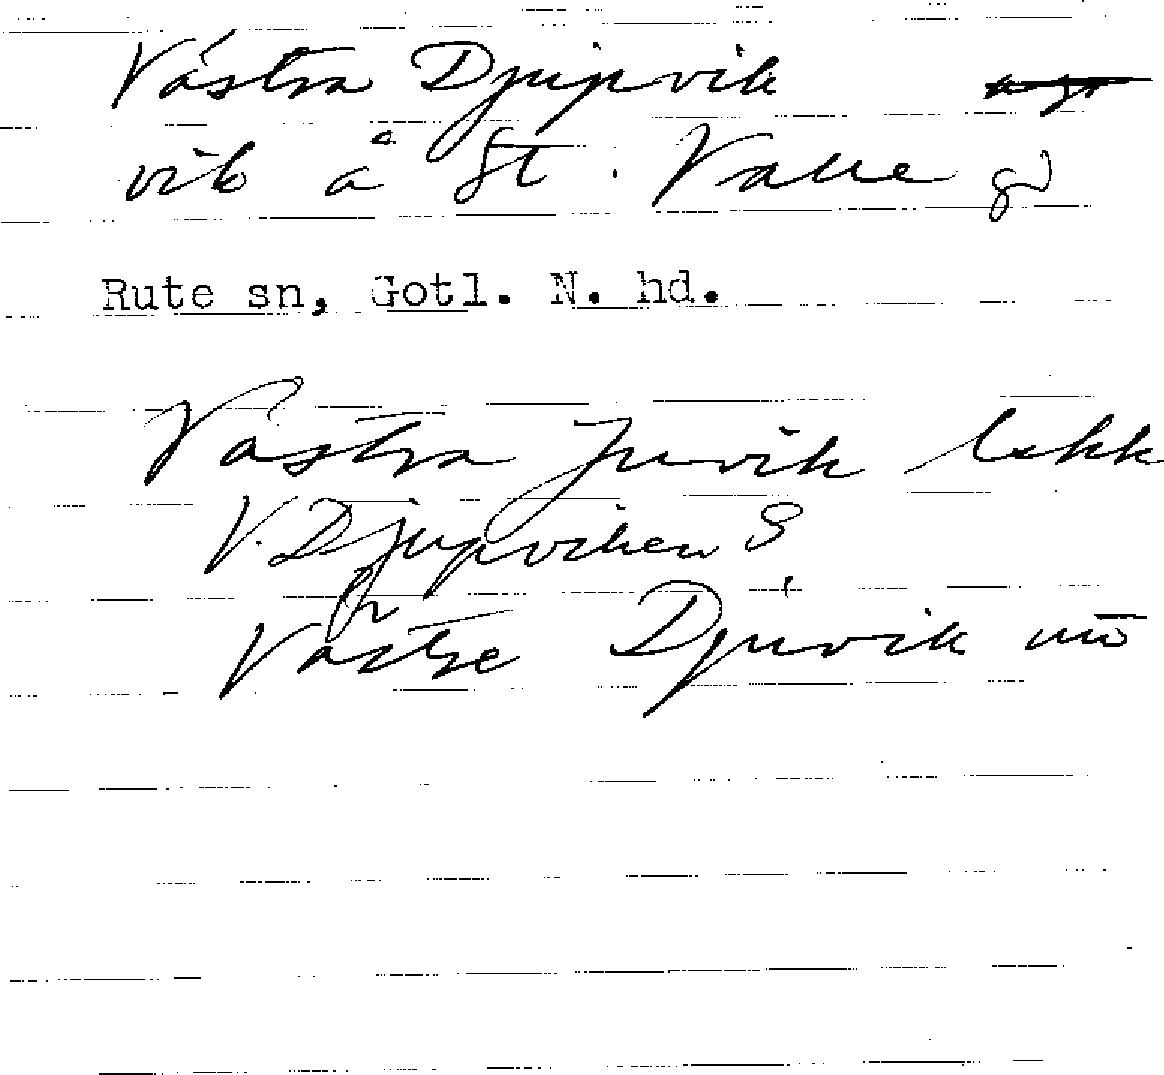 Västra Djupvik
vik å St. Valle gd
Rute sn, Gotl. N. hd.
Västra Juvik lekk
V. Djupviken S
Västre Djuvik